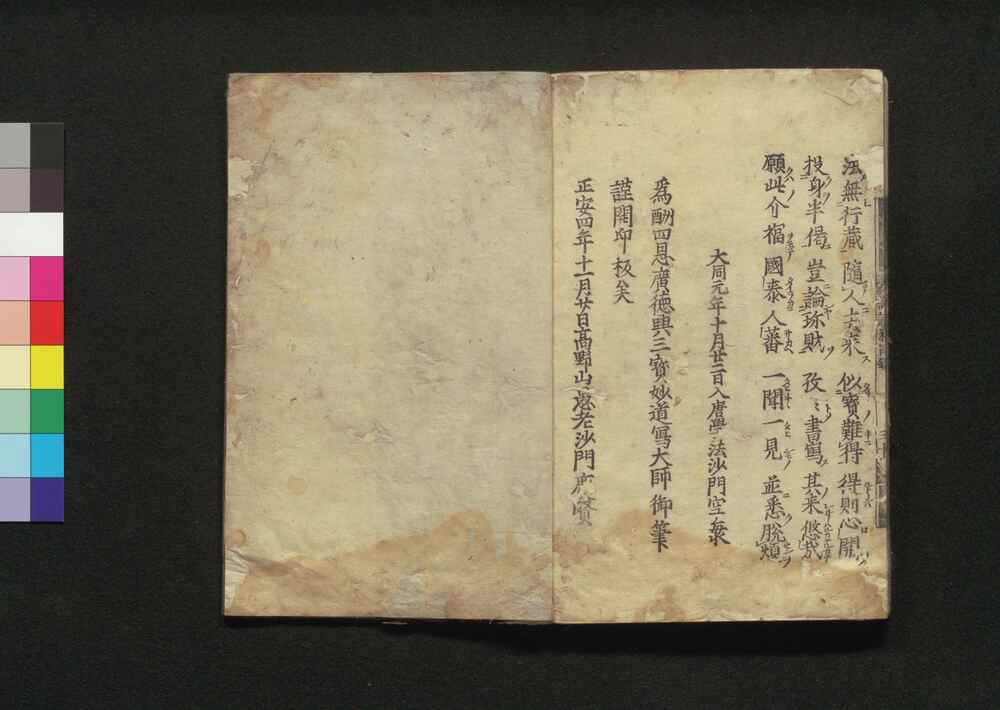 法無行藏 隨人去來 似寶難得 得則心開
投身半偈 豈論珎財 孜〻書寫 其来悠哉
願此介福 國泰人蕃 一聞一見 並悉脫煩
大同元年十月廿二日入唐學法沙門空海
爲酬四恩廣德興三寶妙道寫大師御筆
謹開印板矣
正安四年十一月廿日髙野山老沙門賢